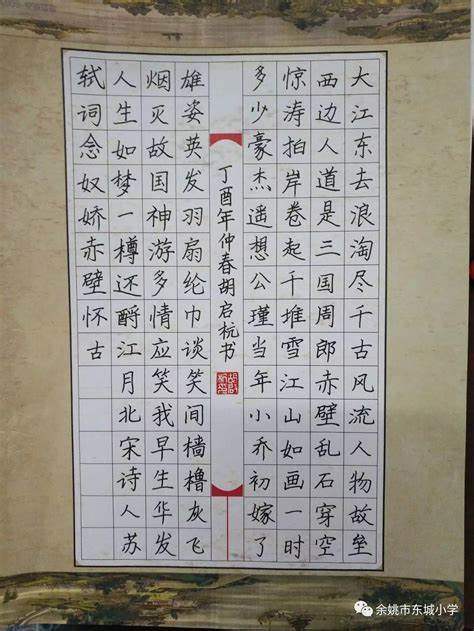 大江东去浪淘尽千古风流人物故垒
西边人道是三国周郎赤壁乱石穿空
惊涛拍岸卷起千堆雪江山如画一时
多少豪杰遥想公瑾当年小乔初嫁了
丁酉年仲春胡启杭书
雄姿英发羽扇纶巾谈笑间樯橹灰飞
烟灭故国神游多情应笑我早生华发
人生如梦一樽还爵江月北宋诗人苏
轼词念奴娇赤壁怀古
余姚市东城小学